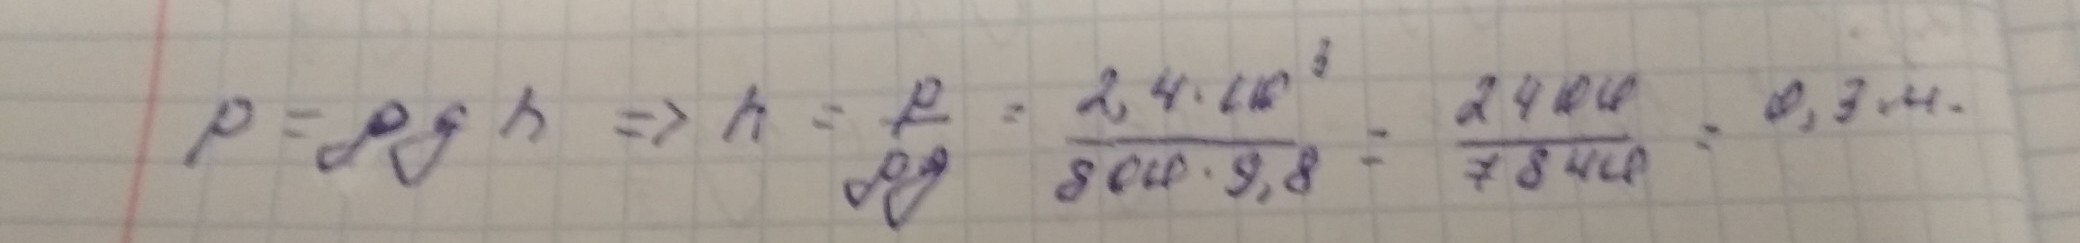 p = ρgh => h = p/ρg = 2,4·10³/800·9,8 = 2400/7840 = 0,3 м.